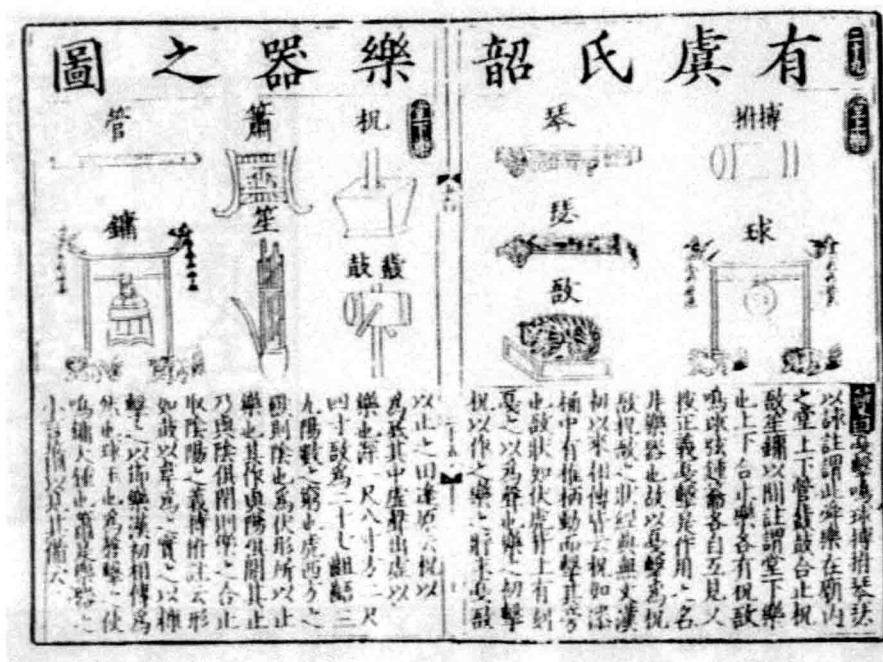 二十九
有虞氏韶樂器之圖
堂上樂
搏拊
球
琴
瑟
敔
堂下樂
柷
鼗鼓
簫
笙
管
鏞
圖戛擊鳴球搏拊琴瑟
以詠註謂此舜樂在廟內
之堂上下管鼗鼓合止柷
敔笙鏞以間註謂堂下樂
也上下合止樂各有柷敔
鳴球弦鍾籥各自互見又
按正義戛擊是作用之名
非樂器也故以戛擊為柷
敔柷敔之狀經典無文漢
初以來相傳皆云柷如漆
桶中有椎柄動而擊其旁
也敔狀如伏虎背上有刻
戛之以為聲也樂之初擊
柷以作之樂之將末戛敔
以止之田逢原云柷以
為其中虛聲出虛以
樂也深一尺八寸方二尺
四寸敔為二十七齟齬三
九陽數之窮也虎西方之
則陰也為伏形所以止
樂也其作與陽俱闢其止
乃與陰俱閉則樂之合止
取陰陽之義搏拊註云形
如鼓以韋為之實之以糠
擊之以節樂漢初相傳為
然也球玉也為擊之使
鳴鏞大鍾也簫是樂器之
小者備以見其備矣